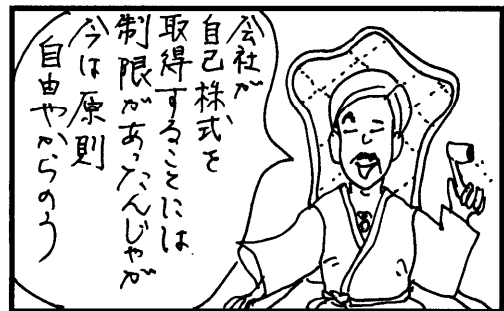 会社が
自己株式を
取得することには
制限があったんじゃが
今は原則
自由やからのう